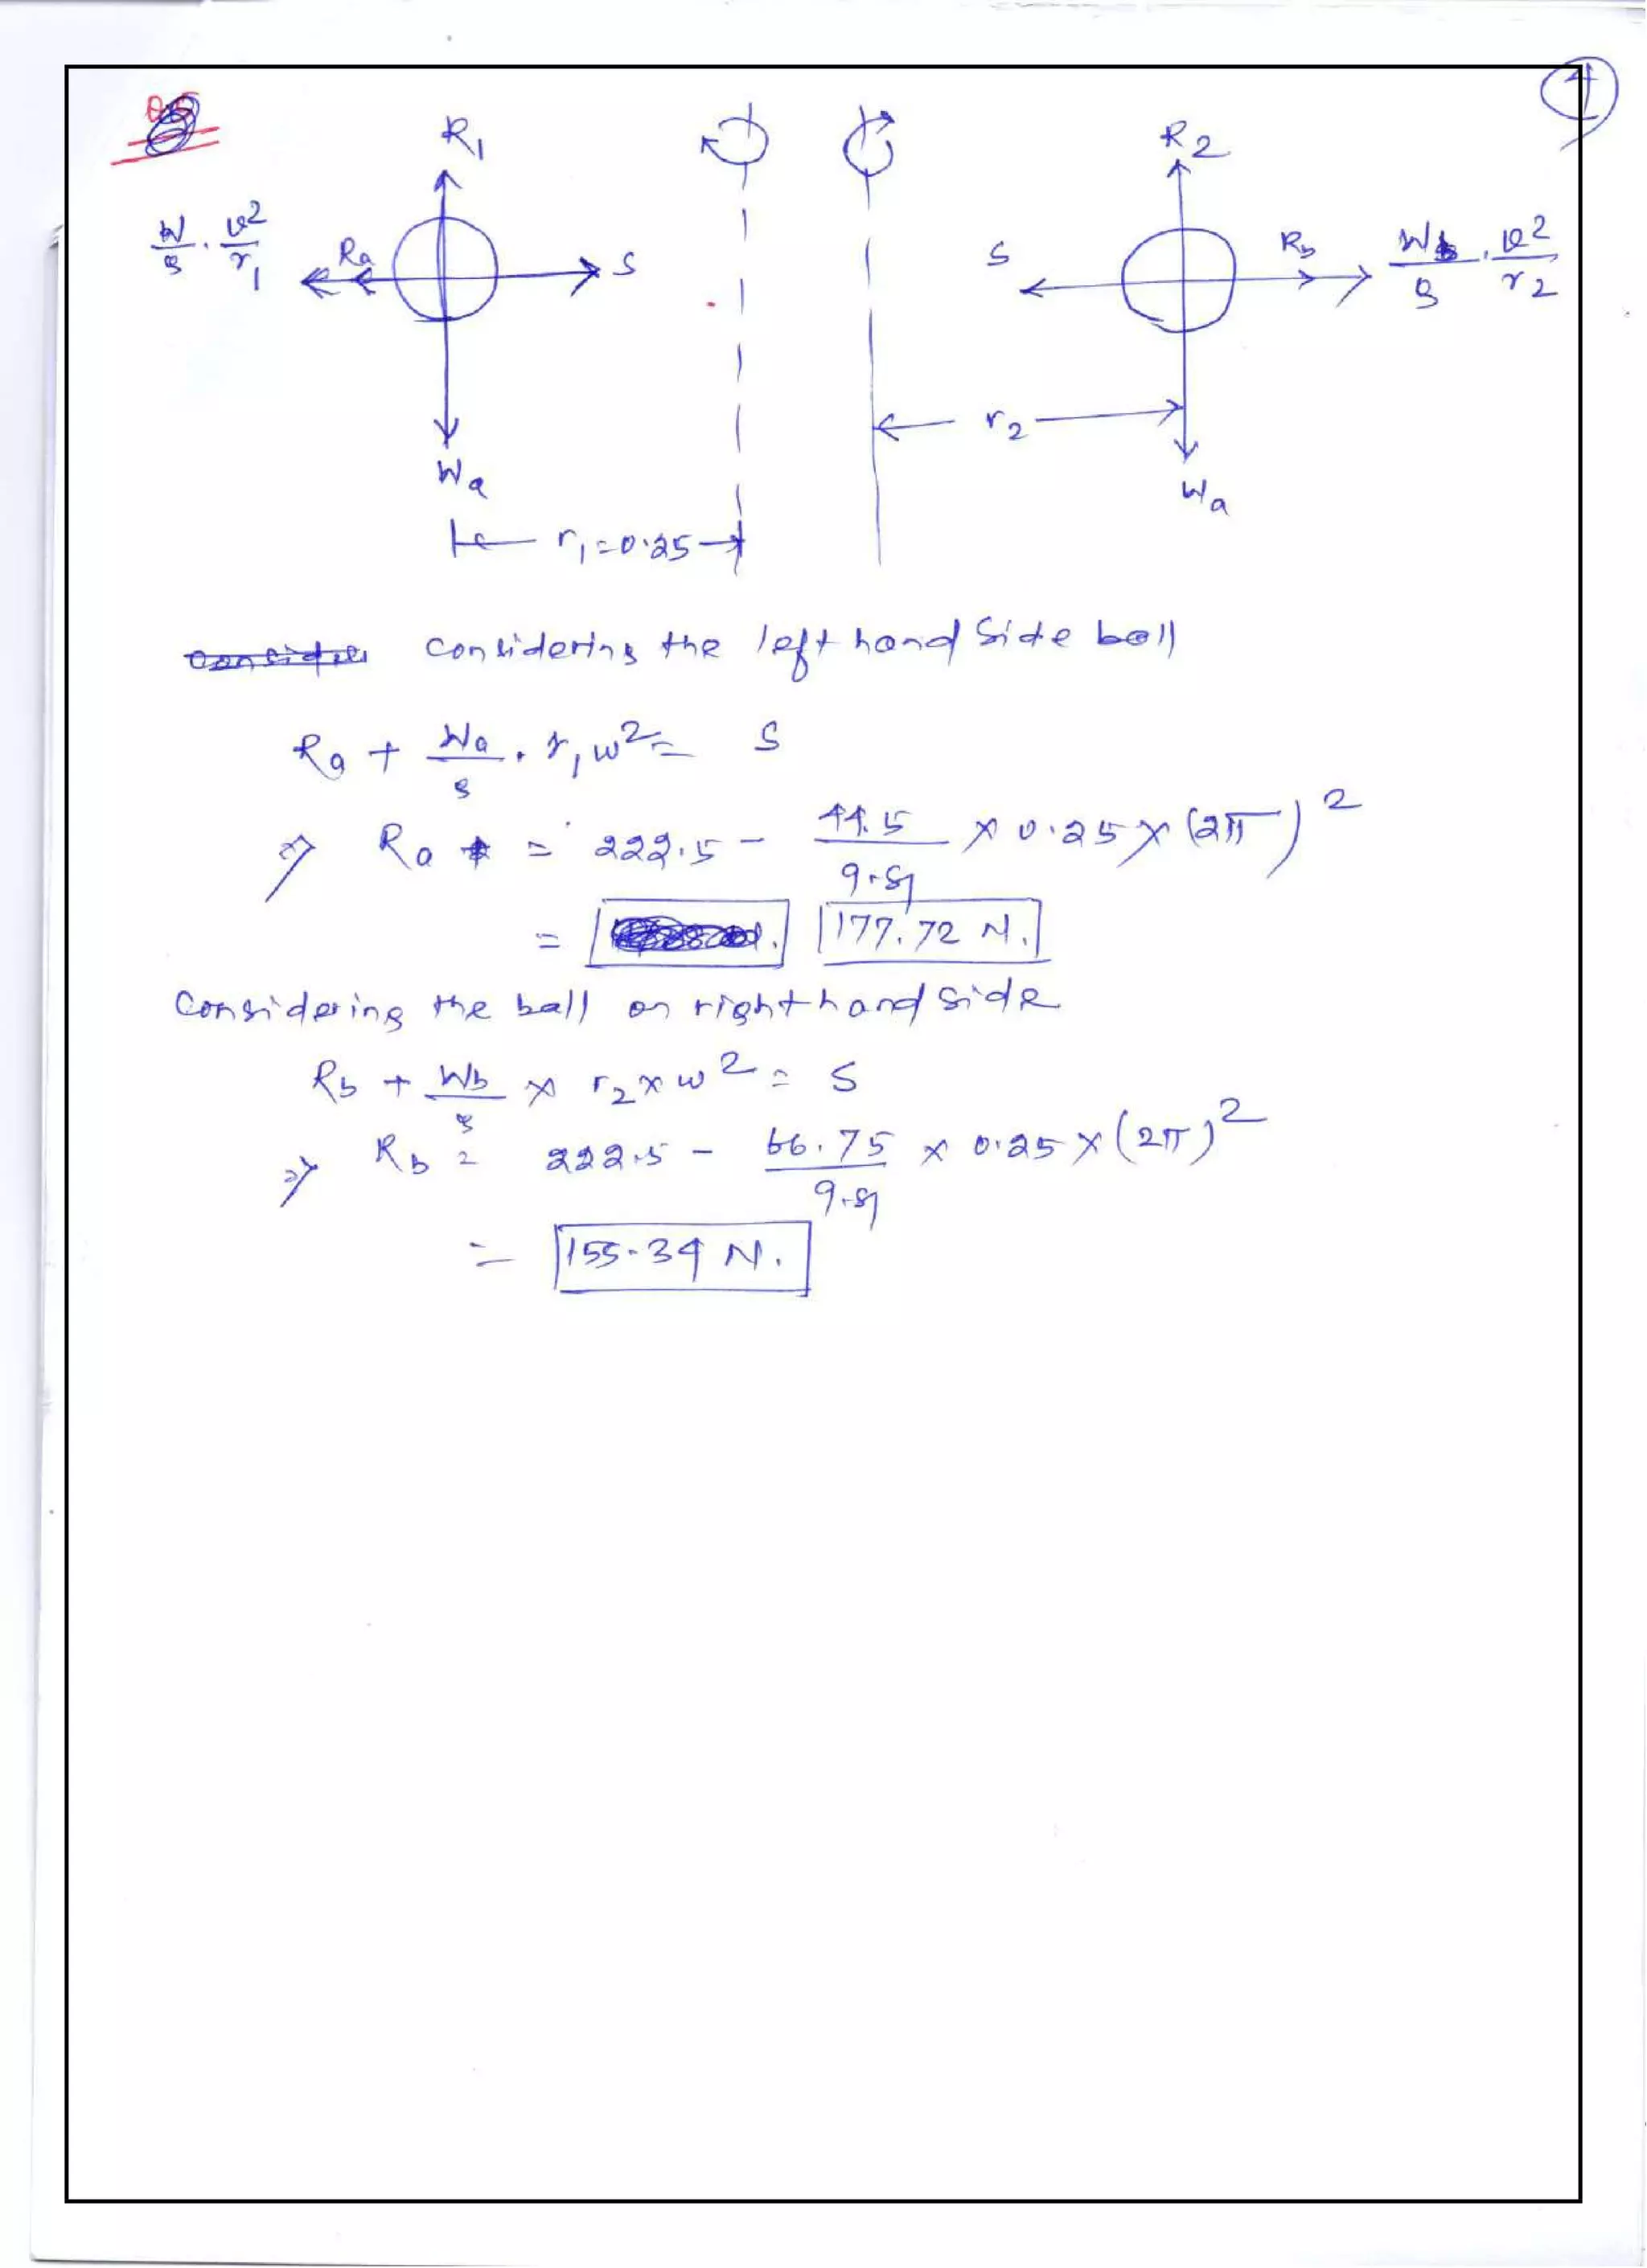 4
R1
R2
W/g . v²/r1
Ra
S
S
Rb
Wb/g . v²/r2
Wa
r2
Wa
r1 = 0.25
Considering the left hand side ball
Ra + Wa/g . r1 ω² = S
⇒ Ra = 222.5 - 44.5/9.81 × 0.25 × (2π)²
= 177.72 N.
Considering the ball on right hand side
Rb + Wb/g × r2 × ω² = S
⇒ Rb = 222.5 - 66.75/9.81 × 0.25 × (2π)²
= 155.34 N.